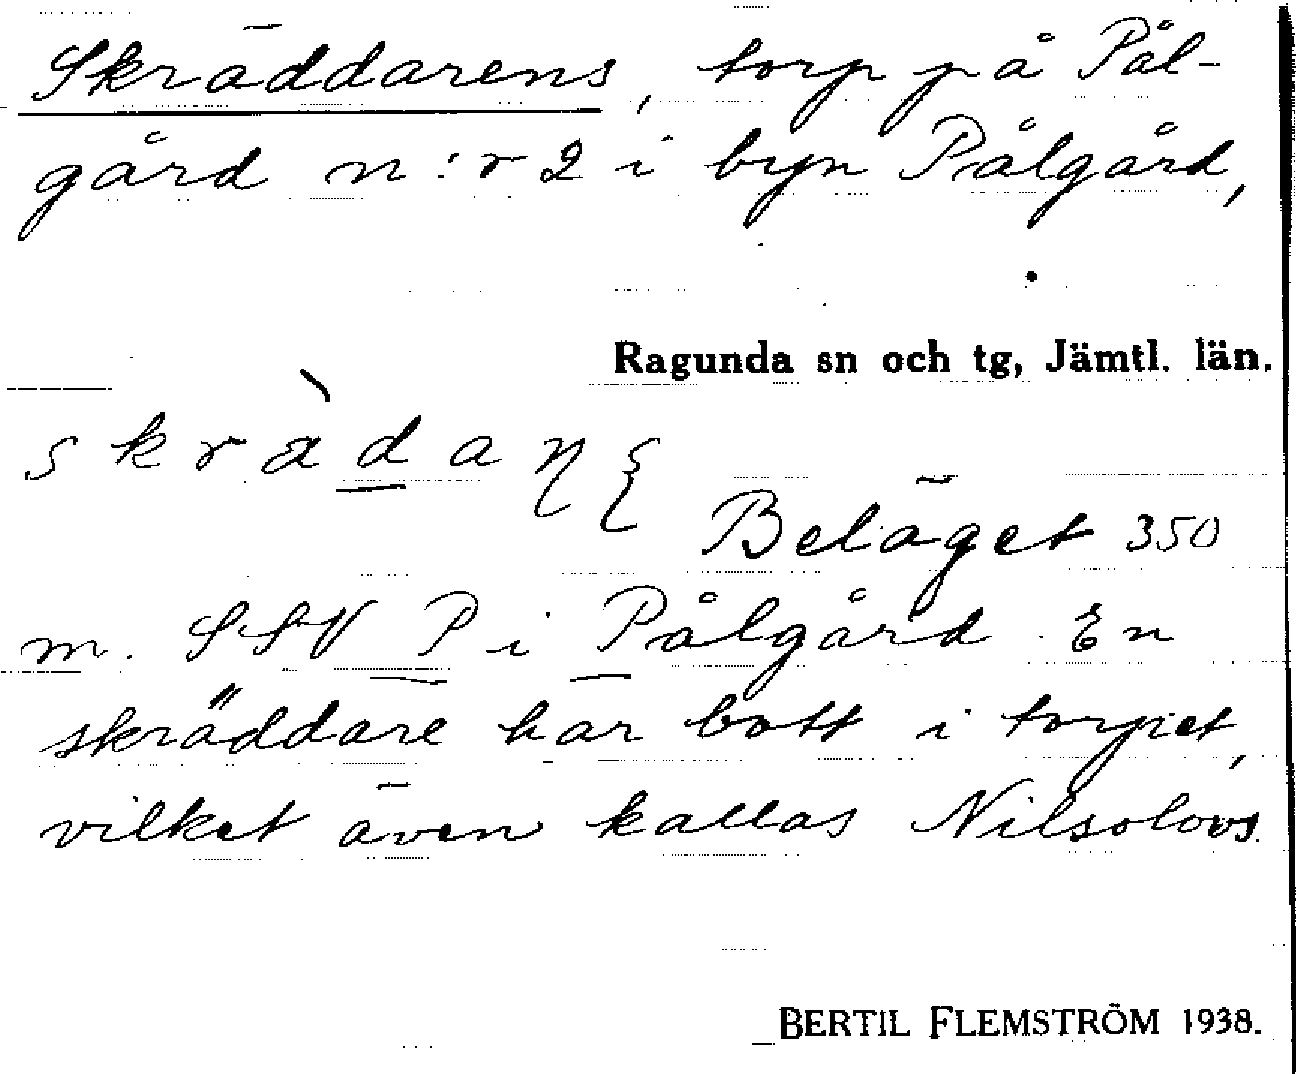 Skräddarens, torp på Pål-
gård n:r 2 i byn Pålgård,
Ragunda sn och tg, Jämtl. län.
Beläget 350
m. SSV P i Pålgård. En
skräddare har bott i torpet,
vilket även kallas Nilsolovs.
BERTIL FLEMSTRÖM 1938.